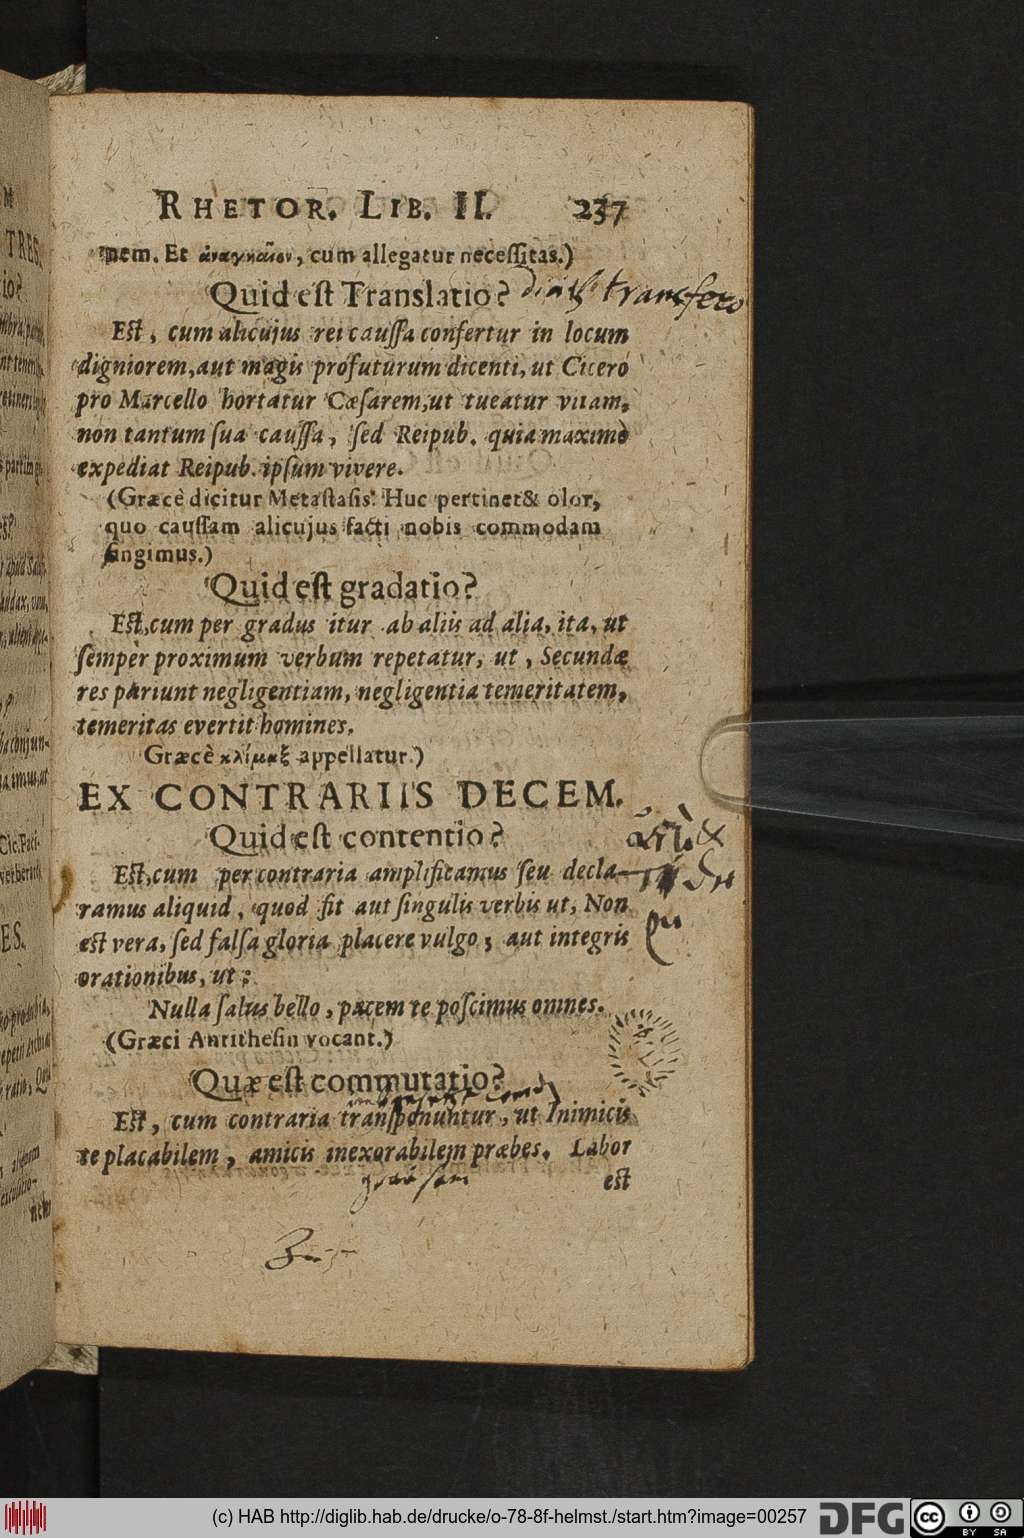 RHETOR. LIB. II. 237
nem. Et ἀναγκαῖον, cum allegatur neceſſitas.)
Quid eſt Translatio? transfero
Eſt, cum alicujus rei cauſſa confertur in locum
digniorem, aut magis profuturum dicenti, ut Cicero
pro Marcello hortatur Cæſarem, ut tueatur vitam,
non tantum ſua cauſſa, ſed Reipub. quia maximè
expediat Reipub. ipſum vivere.
(Græcè dicitur Metaſtaſis. Huc pertinet & olor,
quo cauſſam alicujus facti nobis commodam
fingimus.)
Quid eſt gradatio?
Eſt, cum per gradus itur ab aliis ad alia, ita, ut
ſempèr proximum verbum repetatur, ut, Secundæ
res pariunt negligentiam, negligentia temeritatem,
temeritas evertit homines.
Græcè κλίμαξ appellatur.)
EX CONTRARIIS DECEM.
Quid eſt contentio?
Eſt, cum per contraria amplificamus ſeu decla-
ramus aliquid, quod fit aut ſingulis verbis ut, Non
eſt vera, ſed falſa gloria placere vulgo; aut integris
orationibus, ut:
Nulla ſalus bello, pacem te poſcimus omnes.
(Græci Antitheſin vocant.)
Quæ eſt commutatio?
Eſt, cum contraria transponuntur, ut Inimicis
te placabilem, amicis inexorabilem præbes. Labor
eſt
(c) HAB http://diglib.hab.de/drucke/o-78-8f-helmst./start.htm?image=00257 DFG cc BY SA